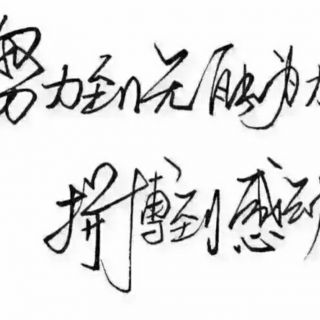 努力到无能为力
拼博到感动